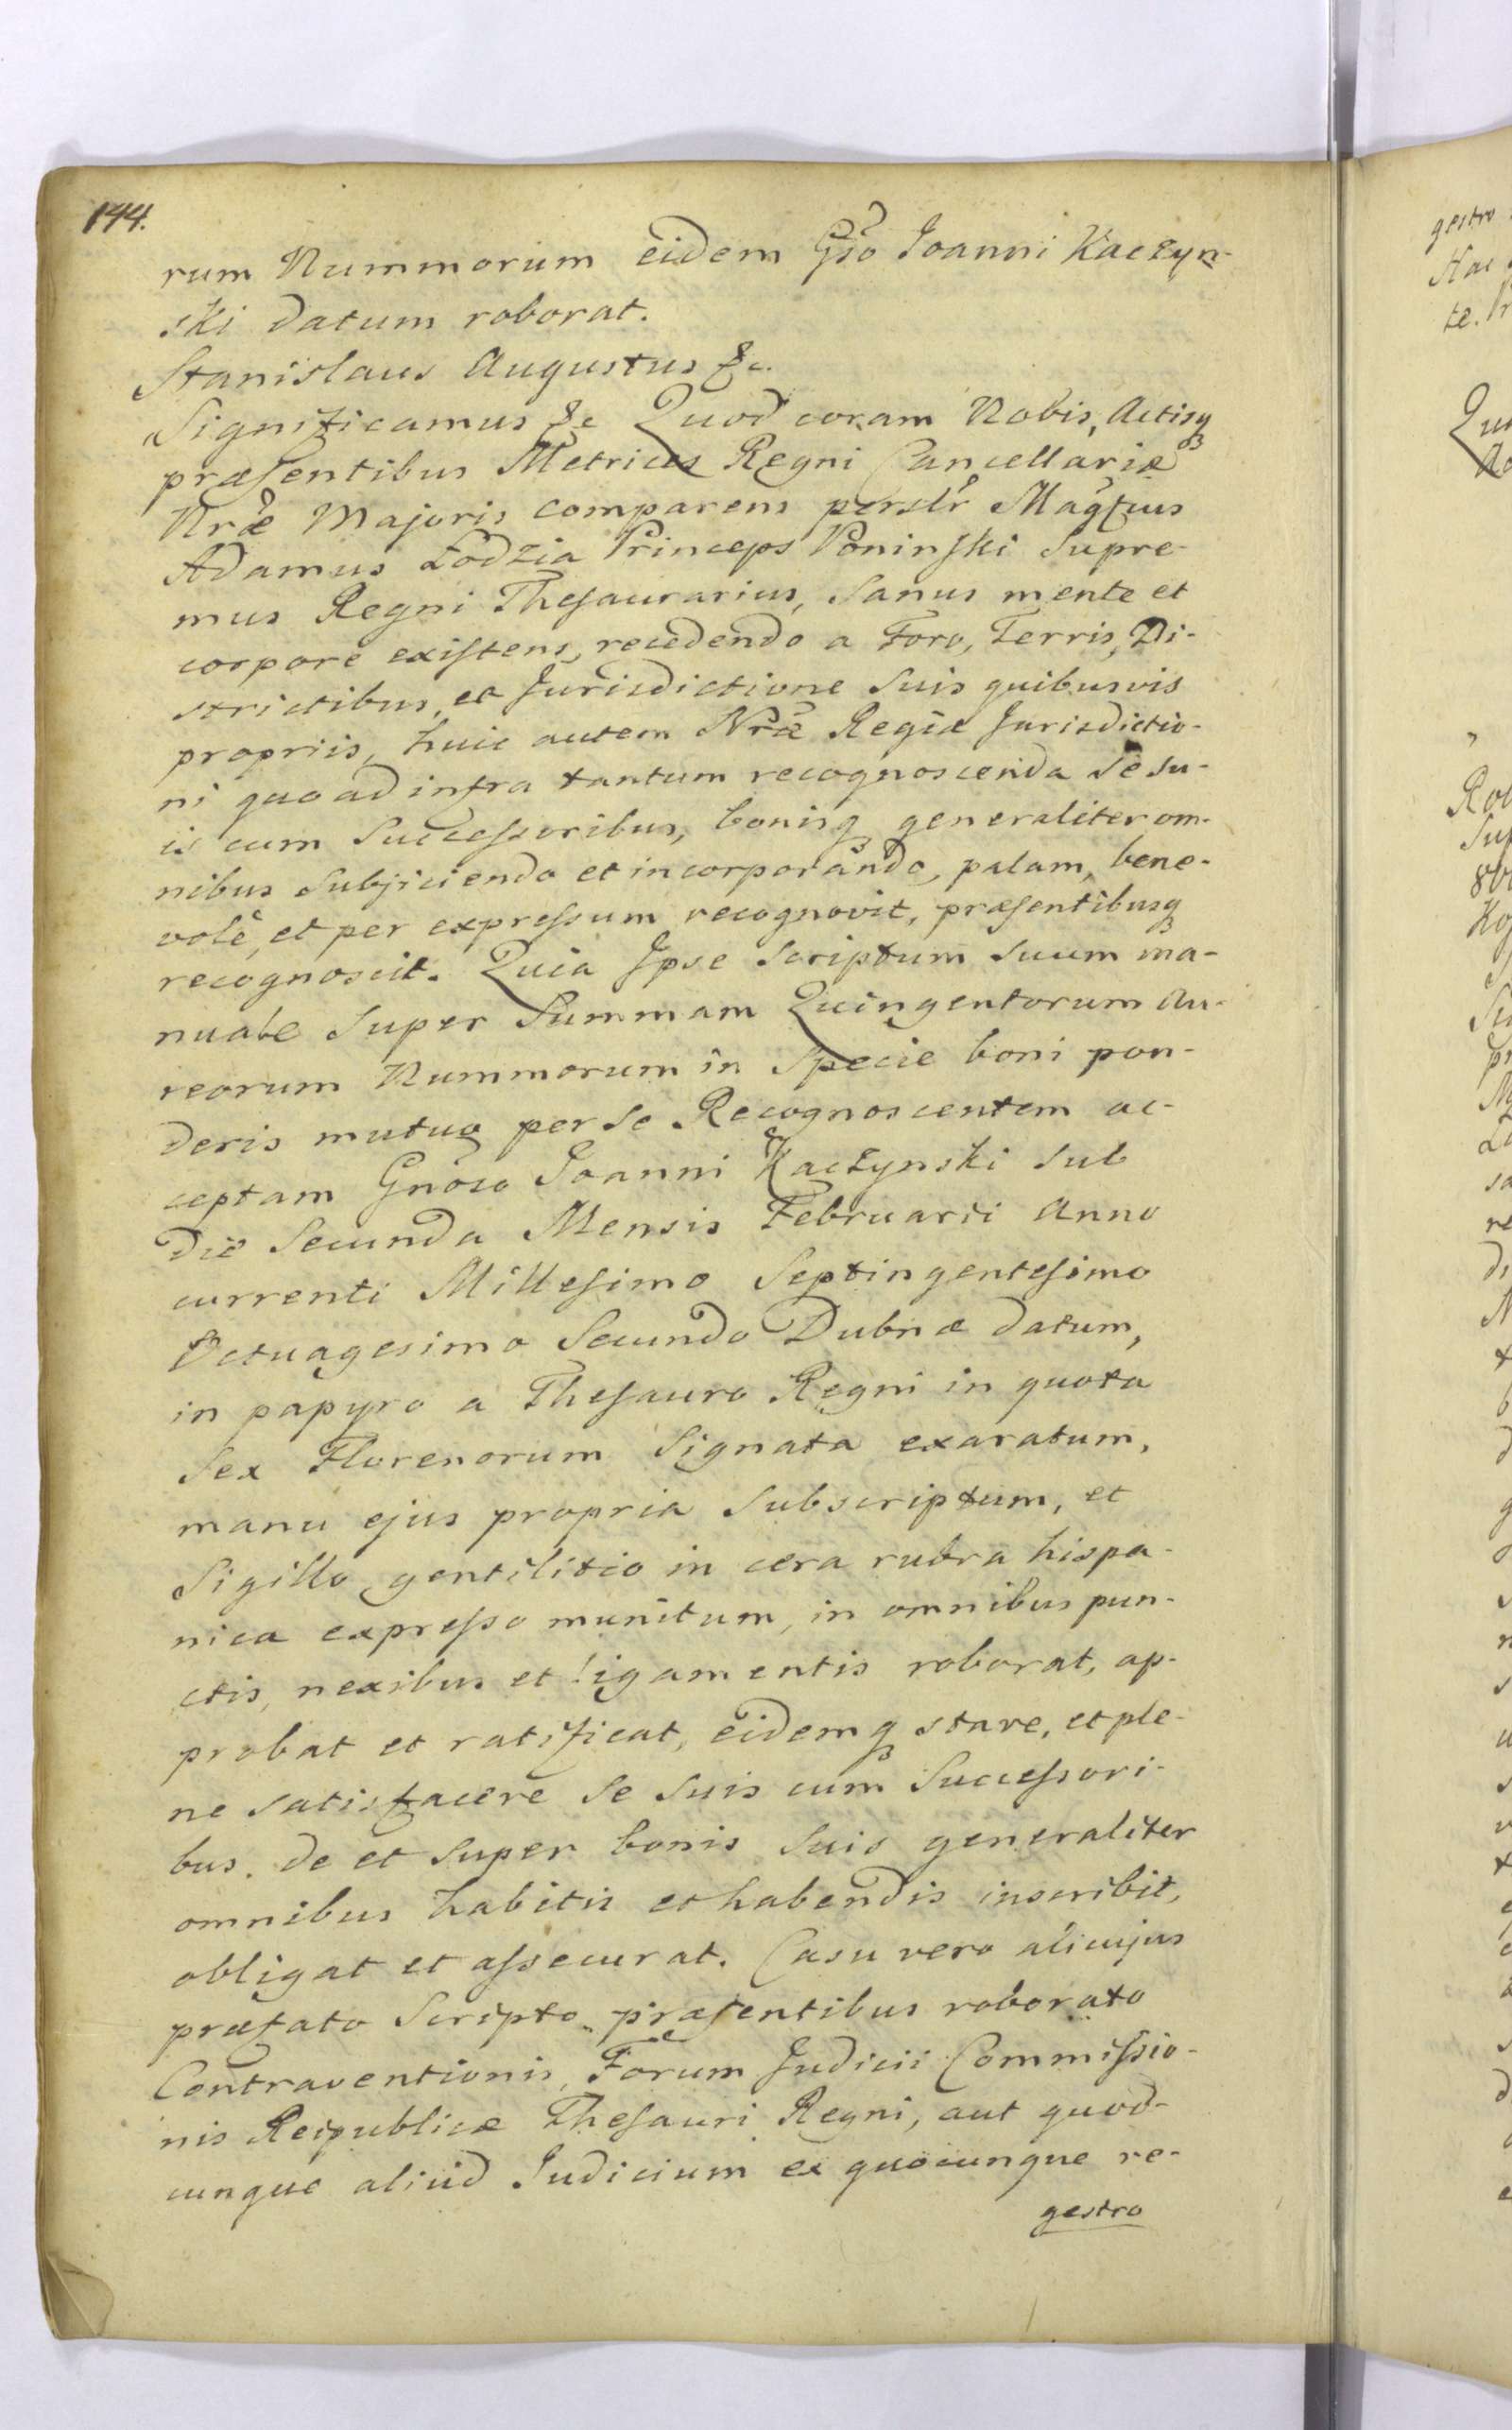 144.
rum Nummorum eidem Gso Joanni Kaczyn-
ski datum roborat.
Stanislaus Augustus &c.
Significamus &c Quod coram Nobis, Actisq
præsentibus Metrices Regni Cancellariæ
Nræ Majoris comparens perslr Magfcus
Adamus Łodzia Princeps Poninski Supre-
mus Regni Thesaurarius, sanus mente et
corpore existens, recedendo a Foro, Terris, Di-
strictibus, et Jurisdictione suis quibusvis
propriis, huic autem Nræ Regiæ Jurisdictio-
ni quo ad infra tantum recognoscenda se su-
is cum Successoribus, bonisq generaliter om-
nibus subjiciendo et incorporando, palam, bene-
volè, et per expressum recognovit, præsentibusq
recognoscit. Quia Ipse Scriptum suum ma-
nuale super Summam Quingentorum Au-
reorum Nummorum in Specie boni pon-
deris mutuo per se Recognoscentem ac-
ceptam Gnoso Joanni Kaczynski sub
die Secunda Mensis Februarii Anno
currenti Millesimo Septingentesimo
Octuagesimo Secundo Dubnæ datum,
in papyro a Thesauro Regni in quota
sex Florenorum Signata exaratum,
manu ejus propria subscriptum, et
Sigillo gentilitio in cera rubra hispa-
nica expresso munitum, in omnibus pun-
ctis, nexibus et ligamentis roborat, ap-
probat et ratificat, eidemq stare, et ple-
ne satisfacere se suis cum Successori-
bus. de et super bonis suis generaliter
omnibus habitis et habendis inscribit,
obligat et assecurat. Casu vero alicujus
præfato Scripto præsentibus roborato
Contraventionis, Forum Judicii Commissio-
nis Reipublicæ Thesauri Regni, aut quod-
cunque aliud Judicium ex quocunque re-
gestro
gestro
Hac
te.